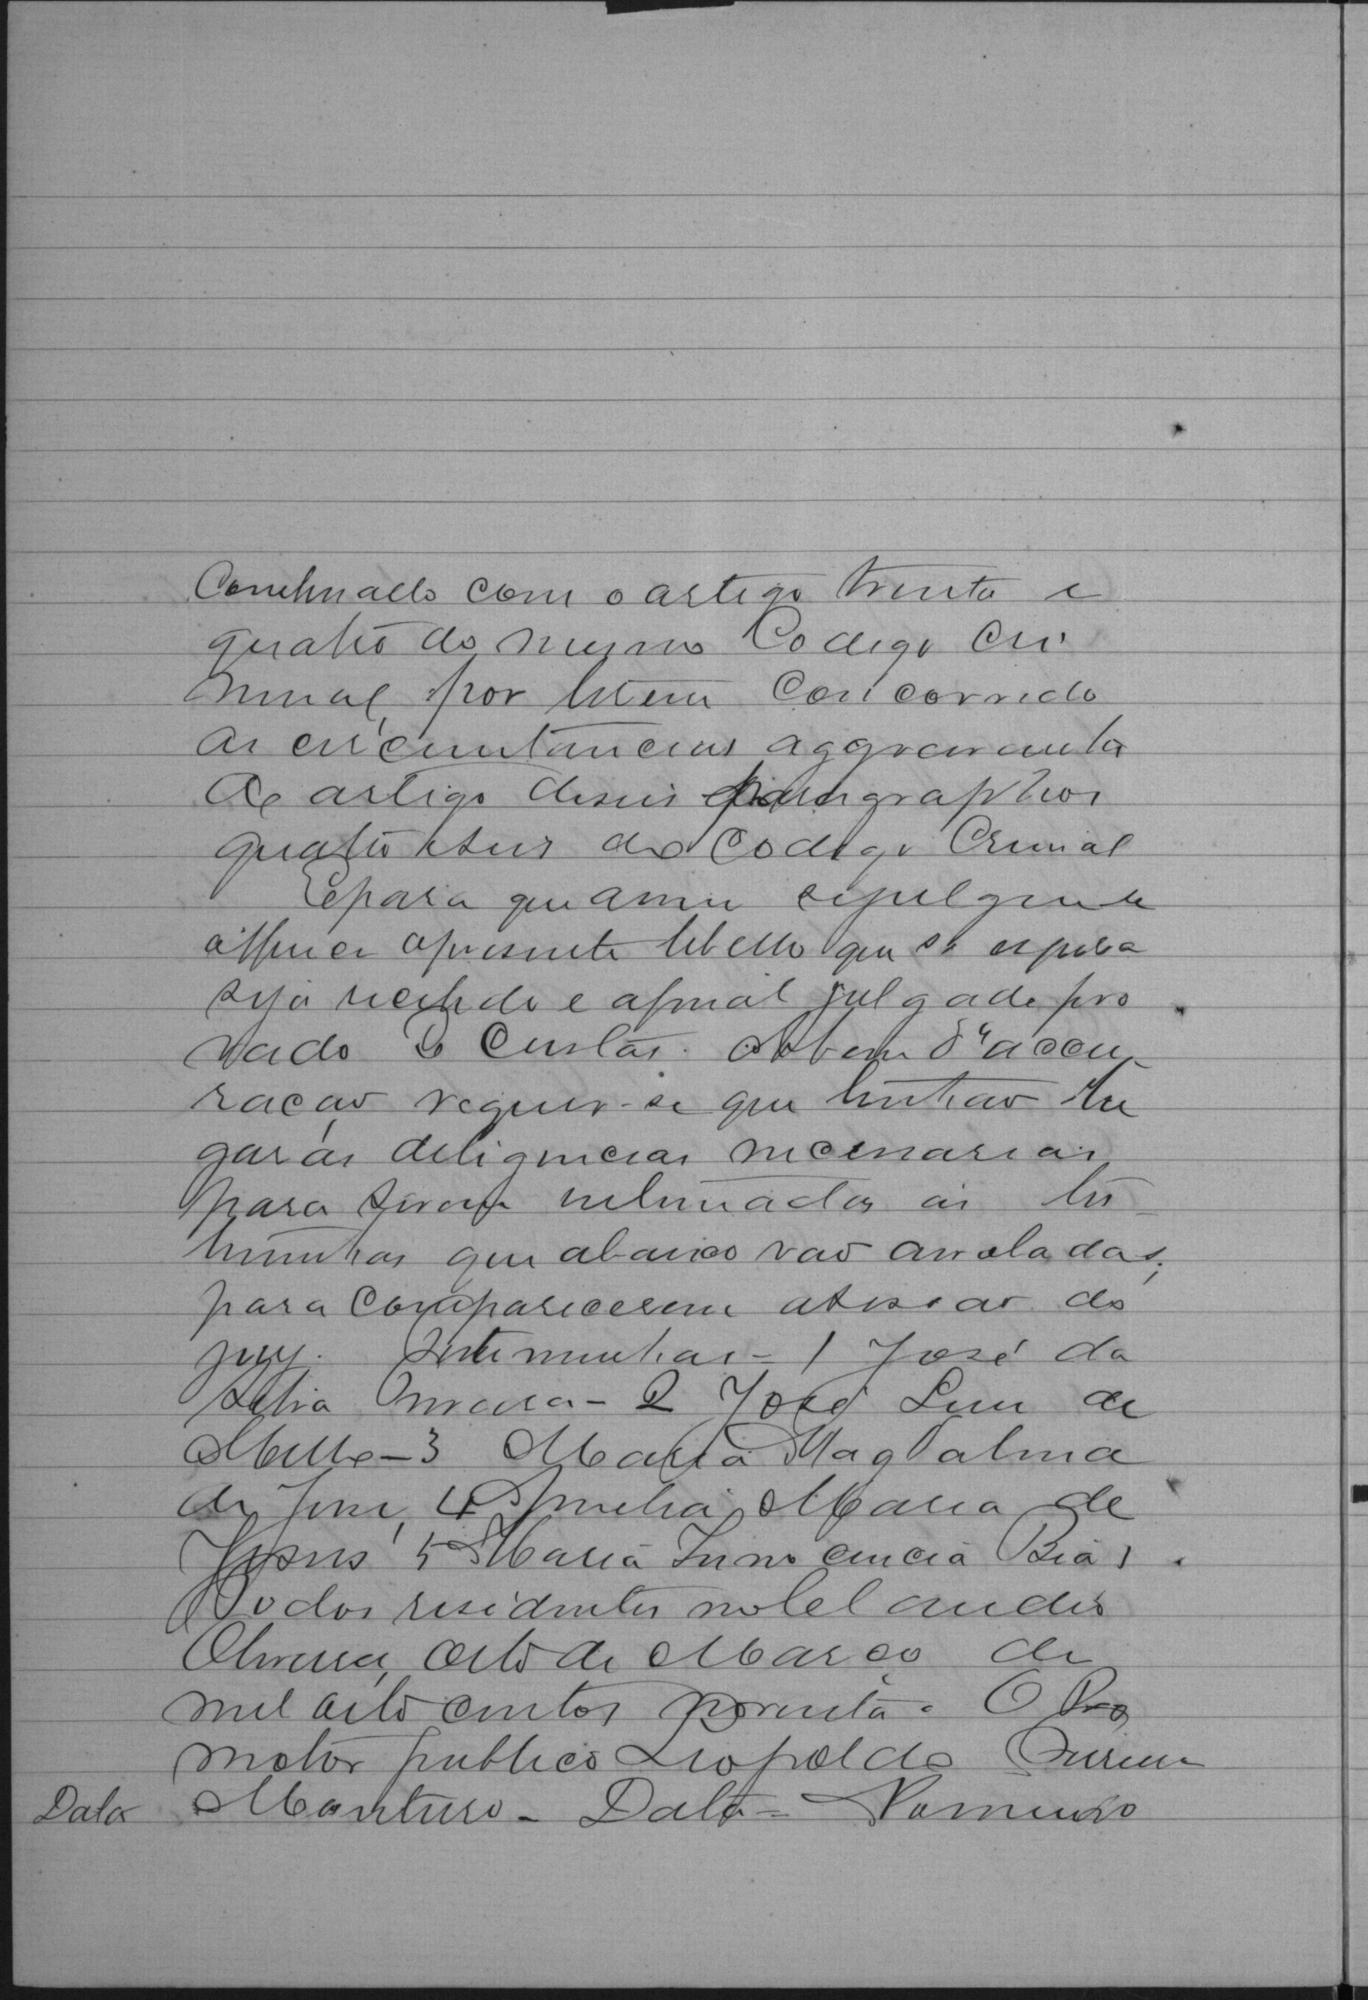 Combinado com o artigo trinta e
quatro do mesmo Codigo Cri
minal, por terem concorrido
as circumstancias aggravantes
do artigo deseseis paragraphos
quatro e seis do Codigo Criminal
E para que assim se julgue se
offerece o presente libello que se espera
seja recebido e afinal julgado pro
vado. E Custas. A bem da accu
sação requer-se que tenhão lu
gar as deligencias necessarias
para serem intimadas as tes
temunhas que abaixo vão arroladas,
para comparecerem a sessão do
jury. Testemunhas - 1 José da
Silva Moreira - 2 José Luis de
Mello - 3 Maria Magdalena
de Jesus, 4 Amelia Maria de
Jesus 5 Maria Innocencia Bias.
Todos residentes no Claudio
Oliveira, oito de Março de
mil oito centos noventa. O Pro
motor publico Leopoldo
Monteiro - Data - No mesmo
Data